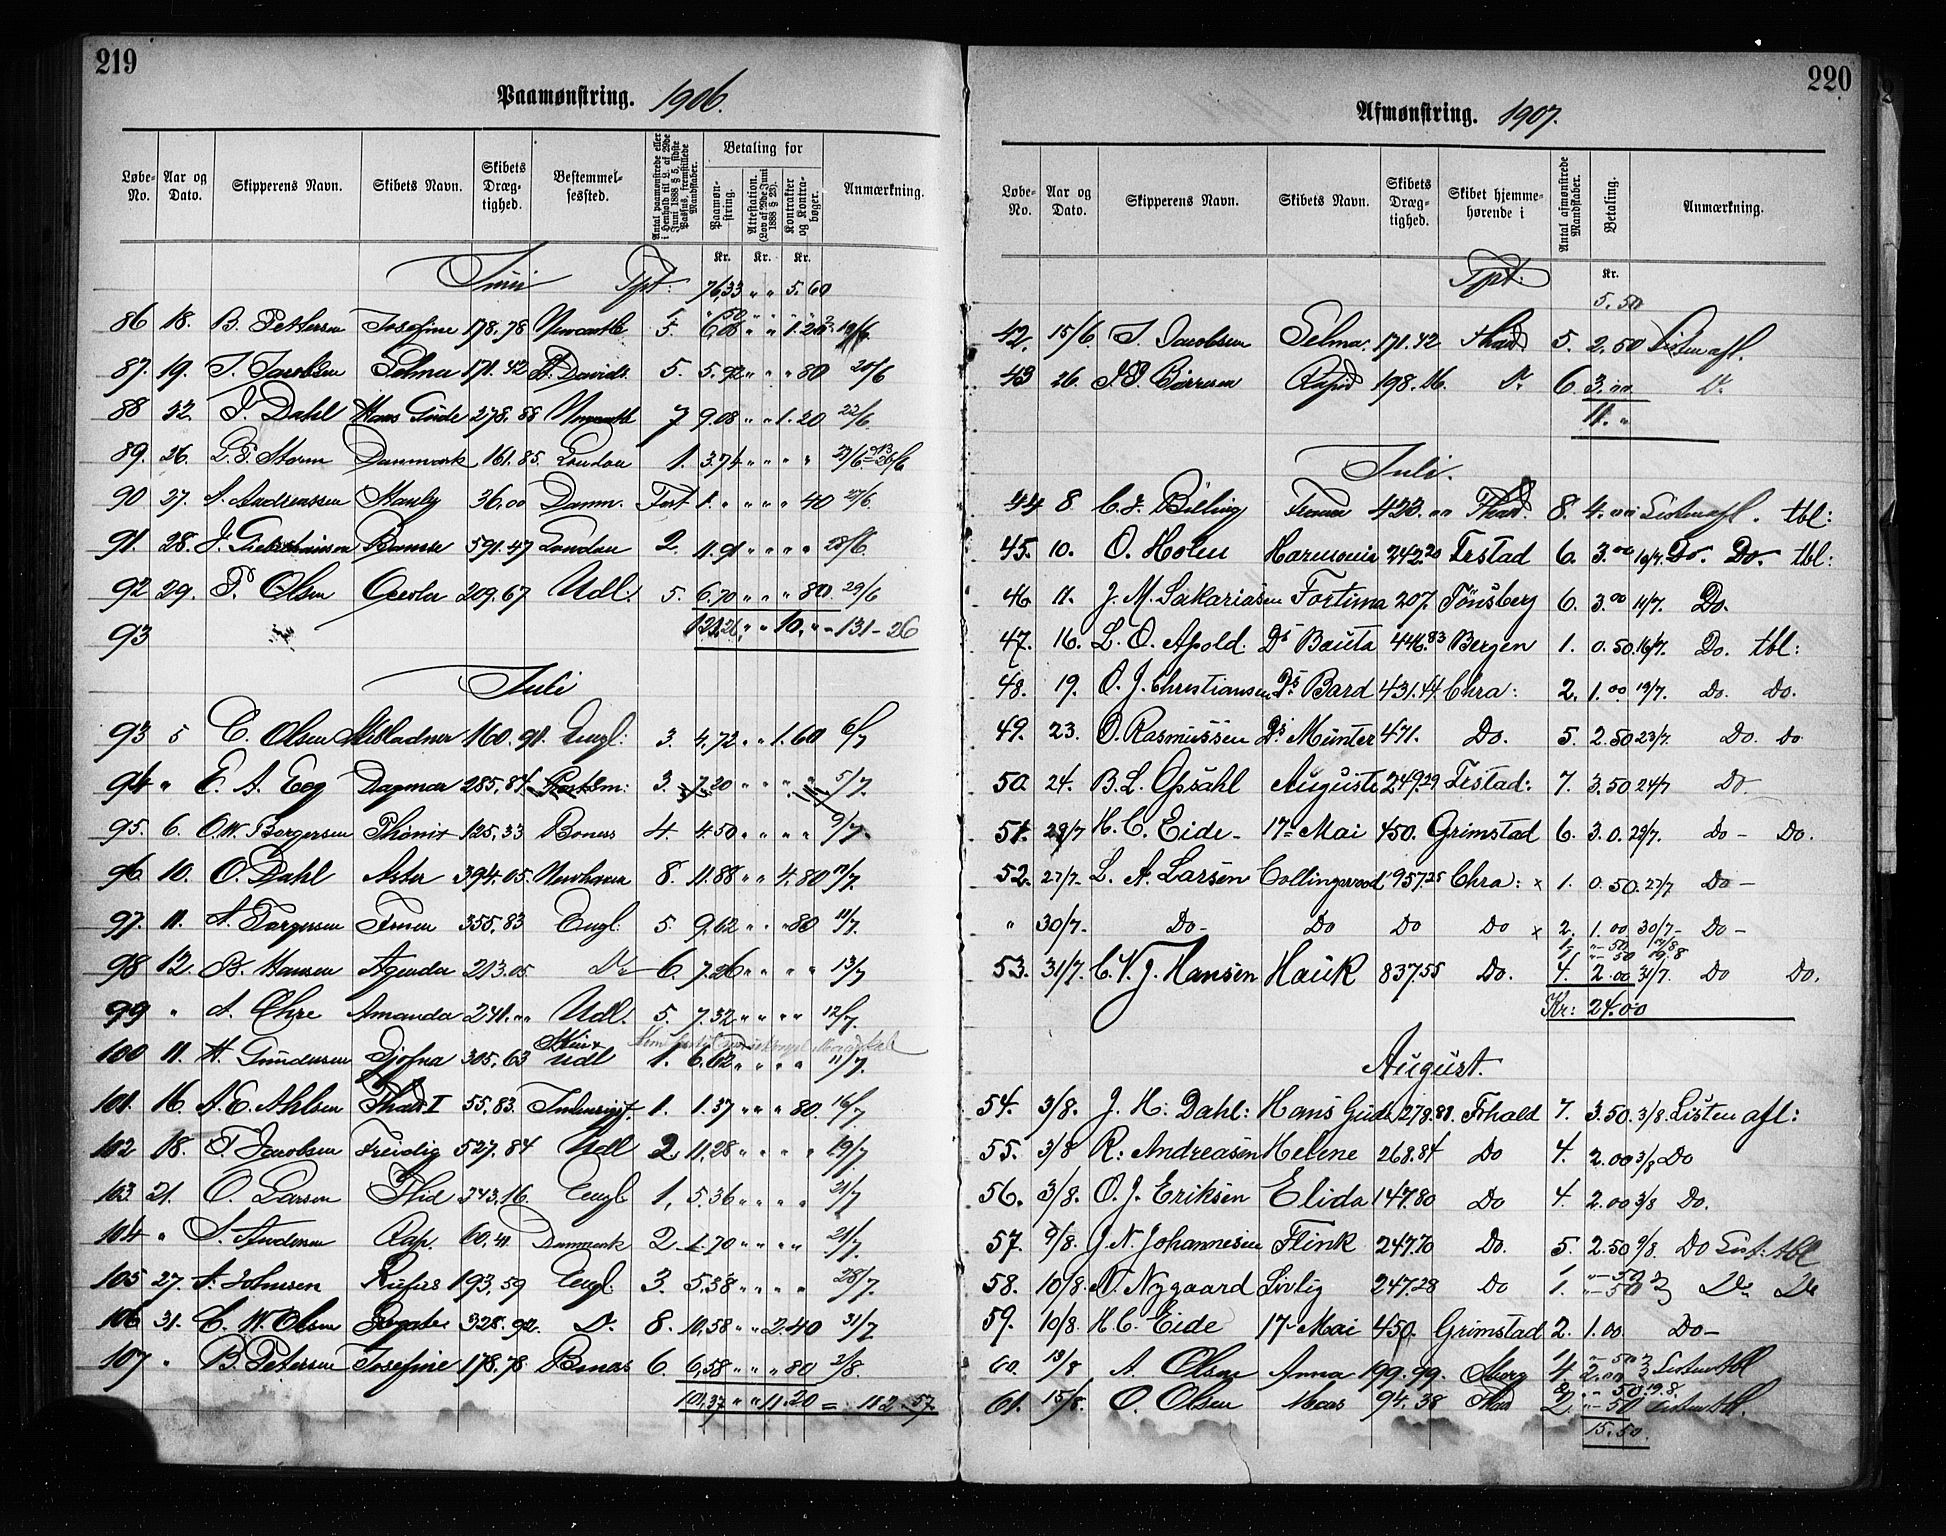 219
Paamønstring. 1906.
Løbe-No. Aar og Dato. Skipperens Navn. Skibets Navn. Skibets Dræg-tighed. Bestemmel-sessted. Antal paamønstrede eller i Henhold til L. af 29de Juni 1888 § 5, sidste Passus, fremstillede Mandskaber. Betaling for Paamøn-string. Attestation. (Lov af 29de Juni 1888 § 23). Kontrakter og Kontra-bøger. Anmærkning.
Kr. Kr. Kr.
Juni Tpt: 76,33 " " 5.60
86 18. B. Pettersen Josefine 178.78 Newcastle 5. 6,08 " " 1.20 19/6
87. 19. J. Jacobsen Selma 171.42 St. Davids 5. 5.92 " " " 80 20/6
88 22. J. Dahl Hans Gude 278.88 Newcastle 7 9.08 " " 1.20 22/6.
89. 26. L. F. Storm Danmark 161.85. London 1. 3.74 " " " " 27/6
90 27. A. Andreassen Stanly 36.00 Danm. Fort 1. " " " " 40 27/6.
91. 28. J. 591.47 London 2. 11.91 " " " " 28/6.
92 29. P. Olsen 209.67 Udl. 5. 6.70 " " " 80. 29/6
93 121,26, " " 10, " - 131-26
Juli
93 5 C. Olsen 160.91. Engl: 3. 4.72 " " 1.60 6/7
94 " E. A. Eeg Dagmar 285,84 3. 7.20 " " " " 5/7.
95. 6. O. W. Borgersen Phönix 125,33 Boness 4. 4.50 " " " " 9/7.
96 10. O. Dahl Aster 394.05. Newhaven 8. 11.88 " " 4.80 12/7.
97. 11. A. Torgersen 355,83 Engl. 5. 9.62 " " " 80 11/7.
98 12. B. Hansen Agenda 213.05 Do 6. 7.26 " " " " 13/7
99 " A. Ohre Amanda 241. " " Udl. 5. 7.32 " " " " 12/7.
100 11. H. Gundersen Gjøfna 305,63 Udl 1. 6.62 " " " " 11/7.
101. 16. A. E. Ahlsen Fhald I 55,83. Indenrigs. 1. 1.37 " " " 80. 16/7
102 18. T. Jacobsen Freidig 527.84 Udl 2 11,28 " " " " 19/7.
103 21. O. Larsen Flid 343.16. Engl. 1, 5,36 " " " " 21/7
104 " S. Andersen Rap. 60,41 Danmark 2 1.70 " " " " 21/7.
105 27. A. Johnsen Rufus 193,59 Engl. 3. 5,38 " " " " 28/7.
106 31. C. W. Olsen 328.92. Do. 8. 10,58 " " 2.40 31/7.
107 " B. Petersen Josefine 178.78 Boness 6. 6,58 " " " 80 2/8.
101,37 " " 11.20 = 112.57
220
Afmønstring. 1907.
Løbe-No. Aar og Dato. Skipperens Navn. Skibets Navn. Skibets Dræg-tighed. Skibet hjemme-hørende i Antal afmønstrede Mandskaber. Betaling. Anmærkning.
Kr.
Tpt. 5.50
42. 15/6. J. Jacobsen Selma. 171.42 Fhald. 5. 2.50 Listen afl.
43 26. Rapid 198.16. Do 6. 3.00 Do.
11. "
Juli.
44 8. C. F. Billing 423. " " Fhald. 8. 4. " " Listen afl. tbl:
45. 10. O. Holen Harmonia 242.20 Frstad 6. 3.00 10/7. Do. Do. tbl:
46 11. J. M. Sakariasen Fortuna 207. Tönsberg 6. 3.00 11/7. Do.
47. 16. L. O. Apold. Ds Bauta 446.83 Bergen 1. 0.50. 16/7. Do. tbl:
48. 19. O. J. Christiansen Ds. Bard 431.44 Chra: 2. 1.00 19/7. Do. Do.
49. 23. O. Rasmussen Ds Munter 471. Do. 5. 2.50 23/7. Do. Do
50. 24. B. L. Opsahl Auguste 249.29 Frstad: 7. 3.50 24/7 Do
51. 29/7 H. C. Eide - 17 Mai 450. Grimstad 6. 3.0. 29/7. Do - Do.
52. 27/7- L. A. Larsen Collingwood 957.25 Chra: x 1. 0.50. 27/7 Do -
" 30/7- Do - Do Do Do x 2. 1.00 30/7 - Do -
1. " - 50 14/8
1. " - 50 19.8
53. 31/7. C. V. J. Hansen Hauk 837.55 Do. 4. 2.00 31/7. Do Do.
Kr: 24.00
August.
54. 3/8. J. H. Dahl: Hans Gude 278.88. Frhald 7. 3.50. 3/8. Listen afl:
55. 3/8 R. Andreasen Helene 268.84 Do 4. 2.00 3/8 Do
56. 3/8. O. J. Eriksen Elida 147.80 Do 4. 2.00 3/8 Do.
57. 9/8. J. N. Johannesen Flink 247.70 Do. 5. 2.50 9/8. Do List. tbl
1 " - 50
58. 10/8. N. Nygaard Livlig 247.28 Do 1. " - 50 Do Do
59. 10/8. H. C. Eide 17 Mai 450. Grimstad 2. 1.00. Do -
1, " - 50
60. 13/8 A. Olsen Anna 199.99. 4 2.00 Listen tbl
2. " - 50. 19.8.
61. 15/8. O. Olsen Maas 94.38 Fhald 2. " - 50 Listen tbl.
15.50.